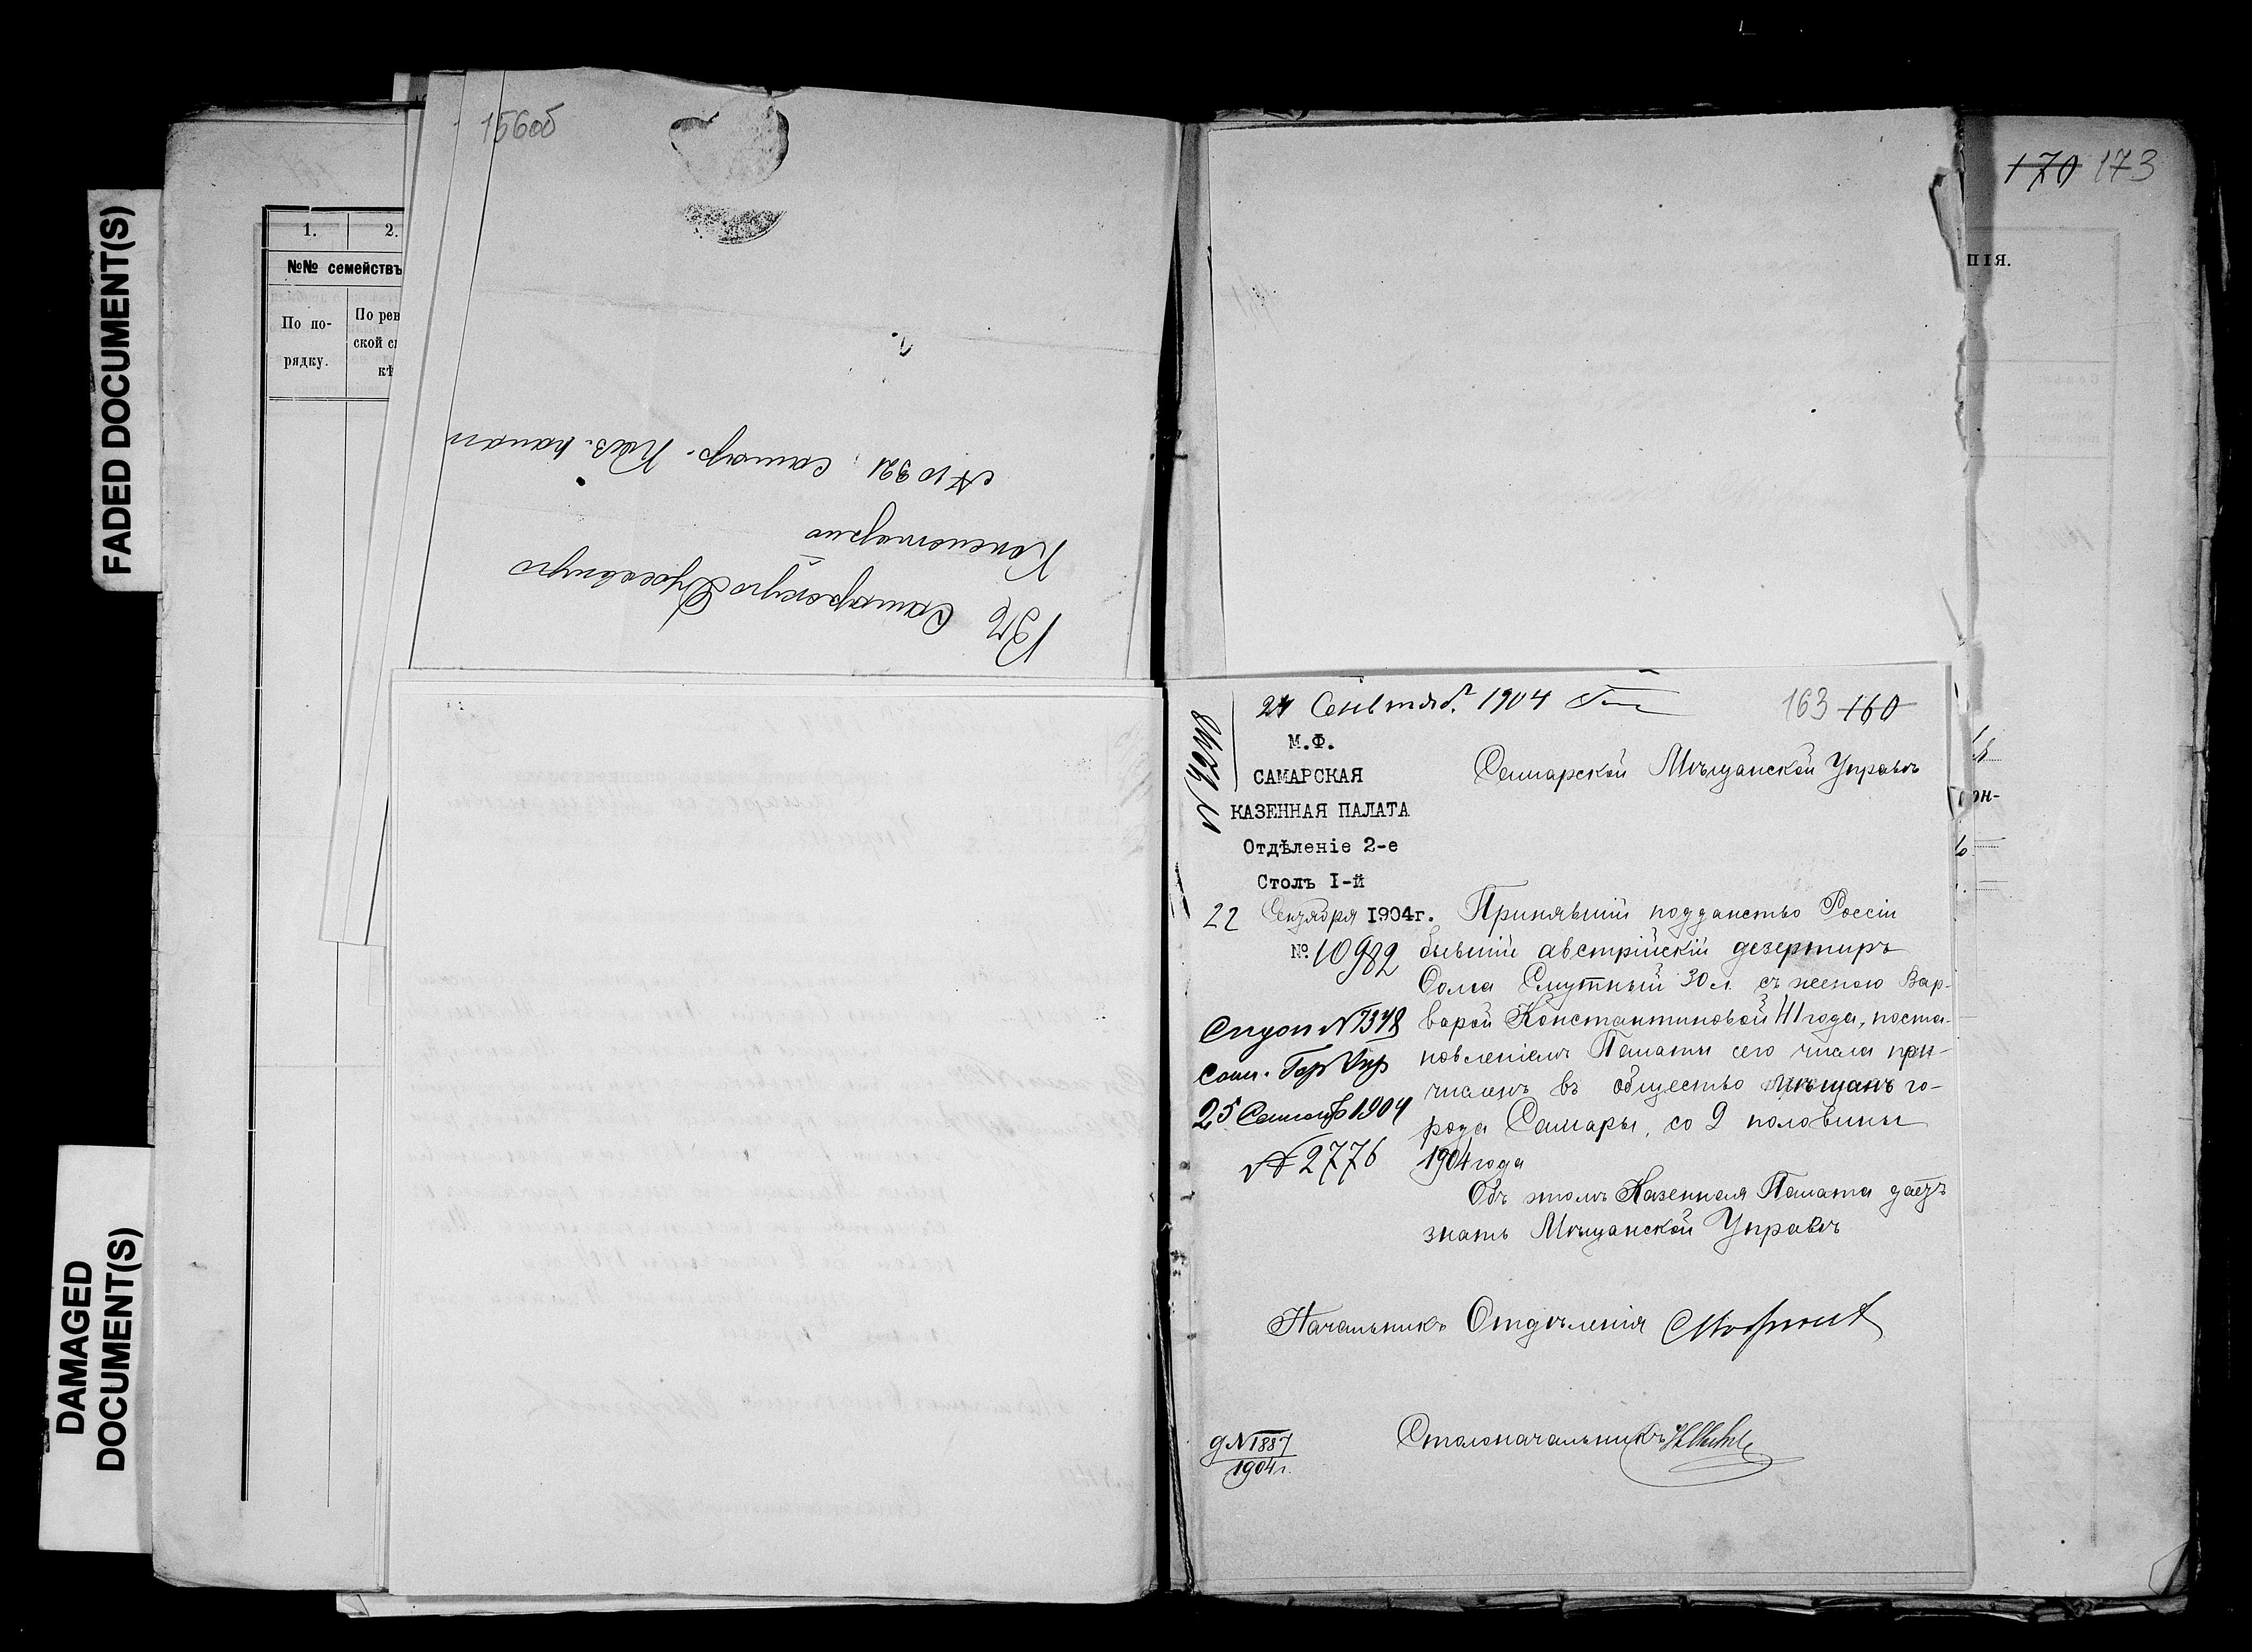 FADED DOCUMENT(S)
DAMAGED
DOCUMENT(S)
1.
2.
№№ семействъ
По по-
рядку.
По рев
ской сп
кѣ
156об
Въ Самарскую Духовную
Консисторию
№ 10321 Самар. Каз. палат
170 173
ПІЯ.
он-
№ 4248
24 Сентяб. 1904
163 160
М.Ф.
САМАРСКАЯ
КАЗЕННАЯ ПАЛАТА
Отдѣленіе 2-е
Столъ I-й
22 Сентября 1904г.
№ 10982
Самарской Мѣщанской Управѣ
Принявшій подданство Россіи
бывшій австрійскій дезертиръ
Смутный 30 л. съ женою Вар-
варой Константиновой 41 года, поста-
новленіемъ Палаты сего числа при-
численъ въ общество мѣщанъ го-
рода Самары, со 2 половины
1904 года
Объ этомъ Казенная Палата даетъ
знать Мѣщанской Управѣ
№ 7348
Сам. Гор Упр
25 1904
№ 2776
Начальникъ Отдѣленія
Столоначальникъ
д № 1887
1904 г.